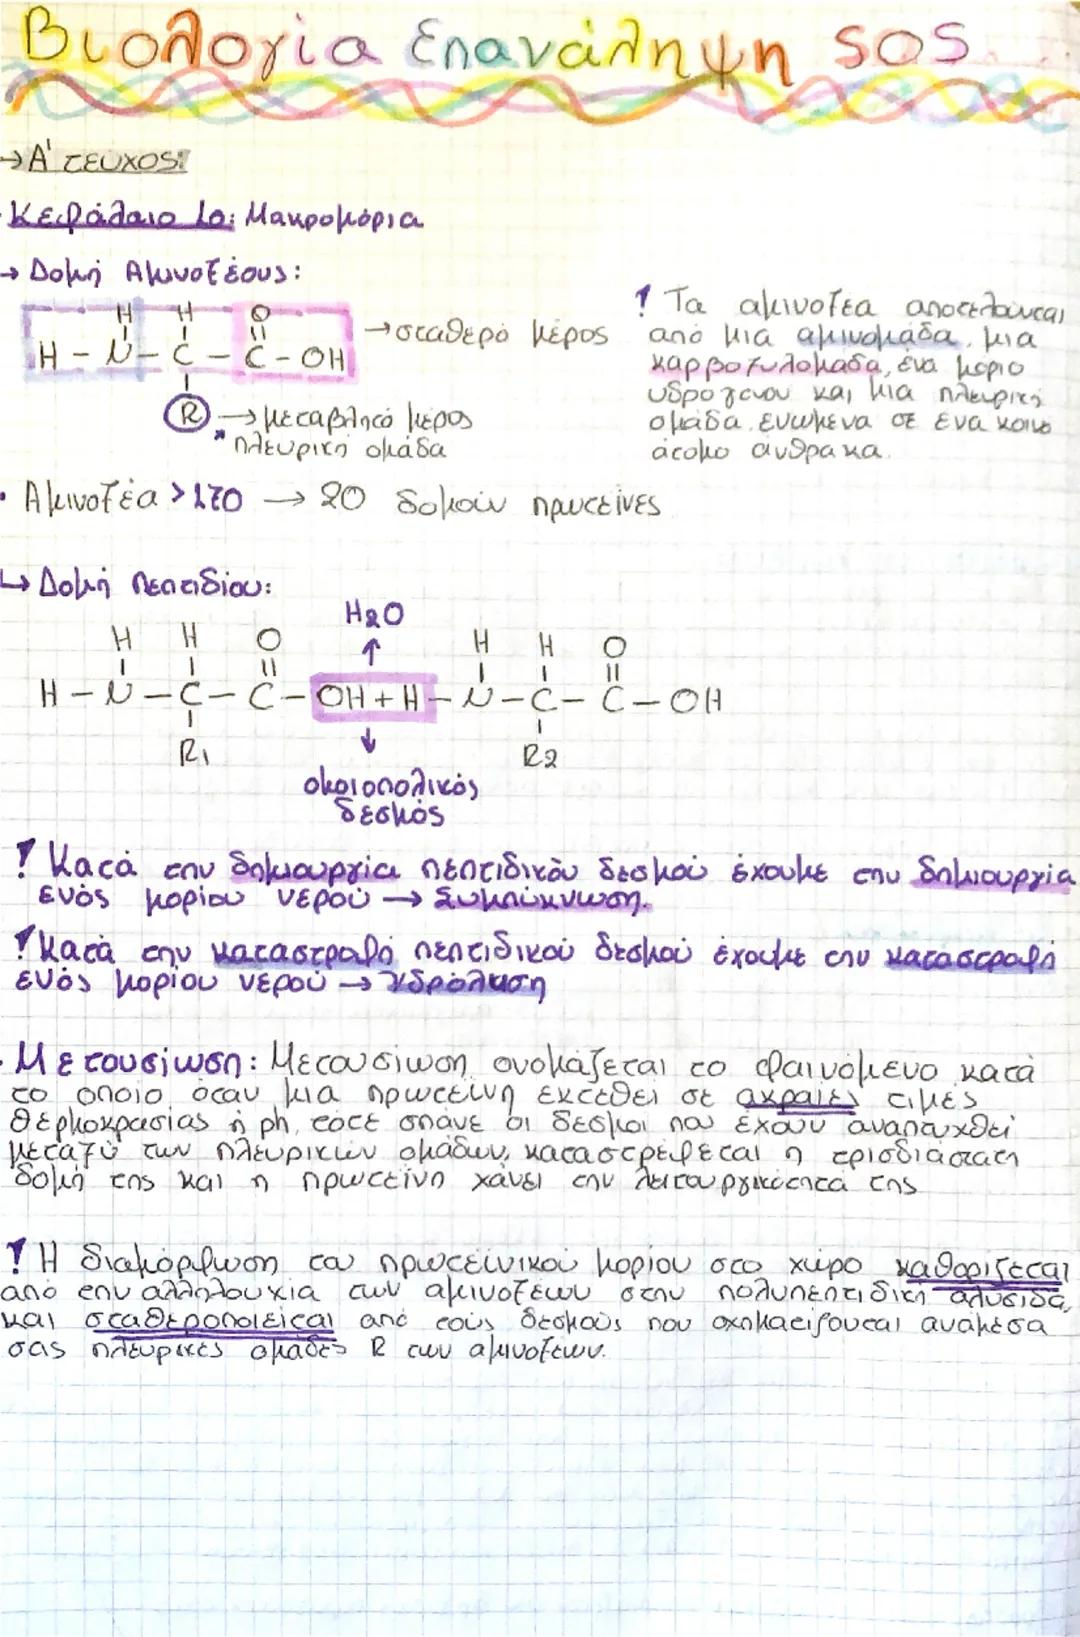 Βιολογία Επανάληψη SOS
→ Α' τεύχος:
Κεφάλαιο 1ο: Μακρομόρια
→ Δομή Αμινοξέους:
H H O
H - N - C - C - OH → σταθερό μέρος
R → μεταβλητό μέρος
* πλευρική ομάδα
! Τα αμινοξέα αποτελούνται
από μια αμινομάδα, μια
καρβοξυλομάδα, ένα μόριο
υδρογόνου και μια πλευρική
ομάδα ενωμένα σε ένα κοινό
άτομο άνθρακα.
• Αμινοξέα > 170 → 20 δομούν πρωτεΐνες
↳ Δομή πεπτιδίου:
H2O
↑
H H O H H O
H - N - C - C - OH + H - N - C - C - OH
R1 ↓ R2
ομοιοπολικός
δεσμός
! Κατά την δημιουργία πεπτιδικού δεσμού έχουμε την δημιουργία
ενός μορίου νερού → Συμπύκνωση.
! Κατά την καταστροφή πεπτιδικού δεσμού έχουμε την καταστροφή
ενός μορίου νερού → Υδρόλυση
Μετουσίωση: Μετουσίωση ονομάζεται το φαινόμενο κατά
το οποίο όταν μια πρωτεΐνη εκτεθεί σε ακραίες τιμές
θερμοκρασίας ή ph, τότε σπάνε οι δεσμοί που έχουν αναπτυχθεί
μεταξύ των πλευρικών ομάδων, καταστρέφεται η τρισδιάστατη
δομή της και η πρωτεΐνη χάνει την λειτουργικότητά της
! Η διαμόρφωση του πρωτεϊνικού μορίου στο χώρο καθορίζεται
από την αλληλουχία των αμινοξέων στην πολυπεπτιδική αλυσίδα,
και σταθεροποιείται από τους δεσμούς που σχηματίζονται ανάμεσα
στις πλευρικές ομάδες R των αμινοξέων.